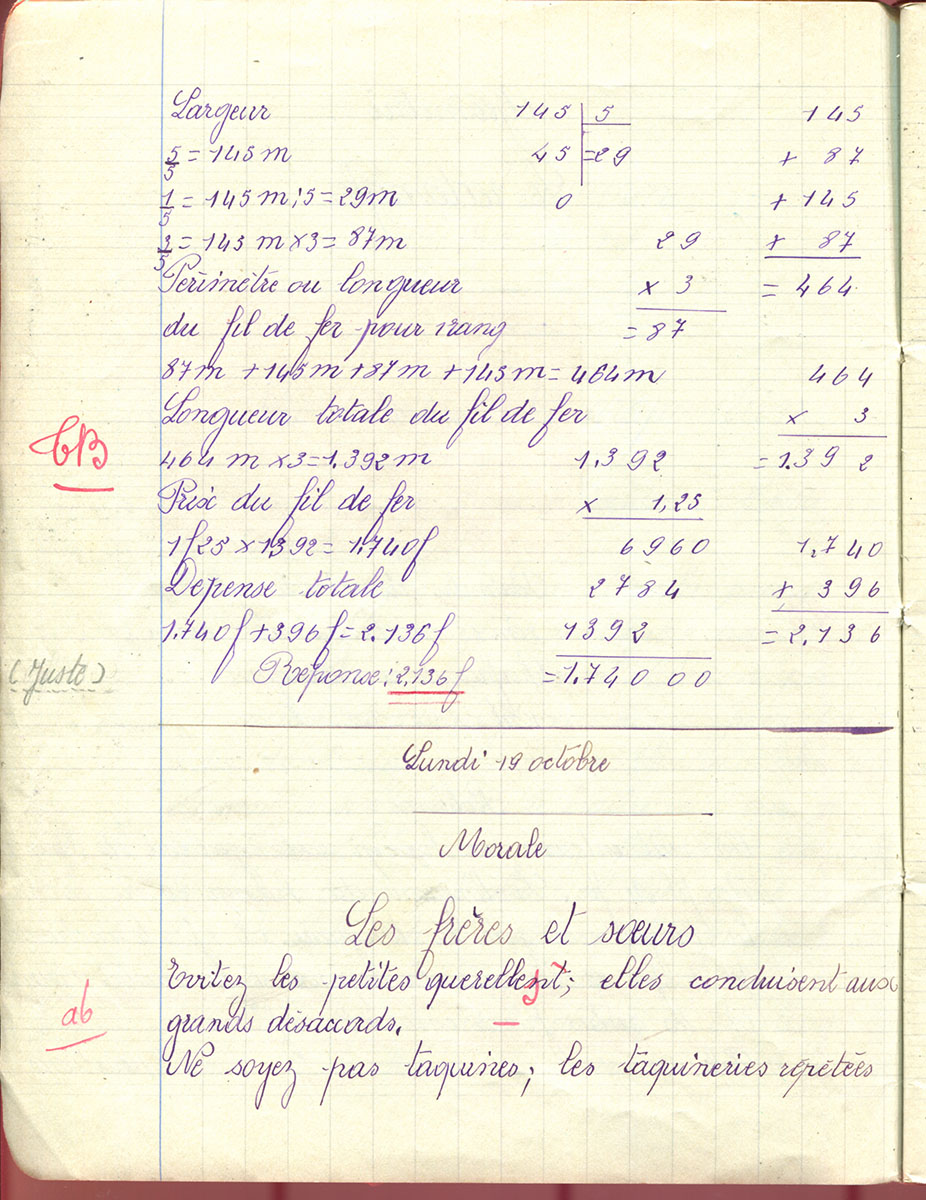 Largeur
5/5 = 145 m
1/5 = 145 m : 5 = 29 m
3/5 = 145 m x 3 = 87 m
Périmètre ou longueur
du fil de fer pour 1 rang
87 m + 145 m + 87 m + 145 m = 464 m
Longueur totale du fil de fer
464 m x 3 = 1.392 m
Prix du fil de fer
1f25 x 1392 = 1.740f
Dépense totale
1.740f + 396f = 2.136f
Réponse : 2.136f
145 | 5
45 | = 29
0
29
x 3
= 87
145
+ 87
+ 145
+ 87
= 464
464
x 3
= 1.392
1.392
x 1,25
6960
2784
1392
= 1.740 00
1.740
+ 396
= 2.136
TB
(Juste)
Lundi 19 octobre
Morale
Les frères et sœurs
Evitez les petites querellent; elles conduisent aux
s
grands désaccords.
ab
Ne soyez pas taquines; les taquineries répétées